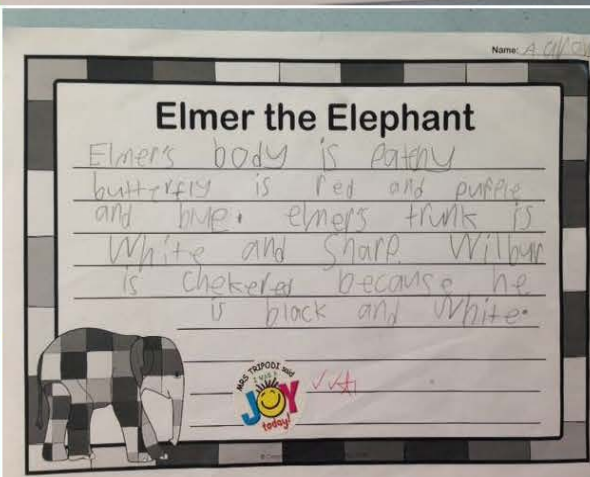 Name: A
Elmer the Elephant
Elmer's body is patchy
butterfly is red and purple
and blue. elmers trunk is
White and Sharp. Wilbur
is chekered because he
is black and White.
MRS TRIPODI said
I was a
JOY
today!